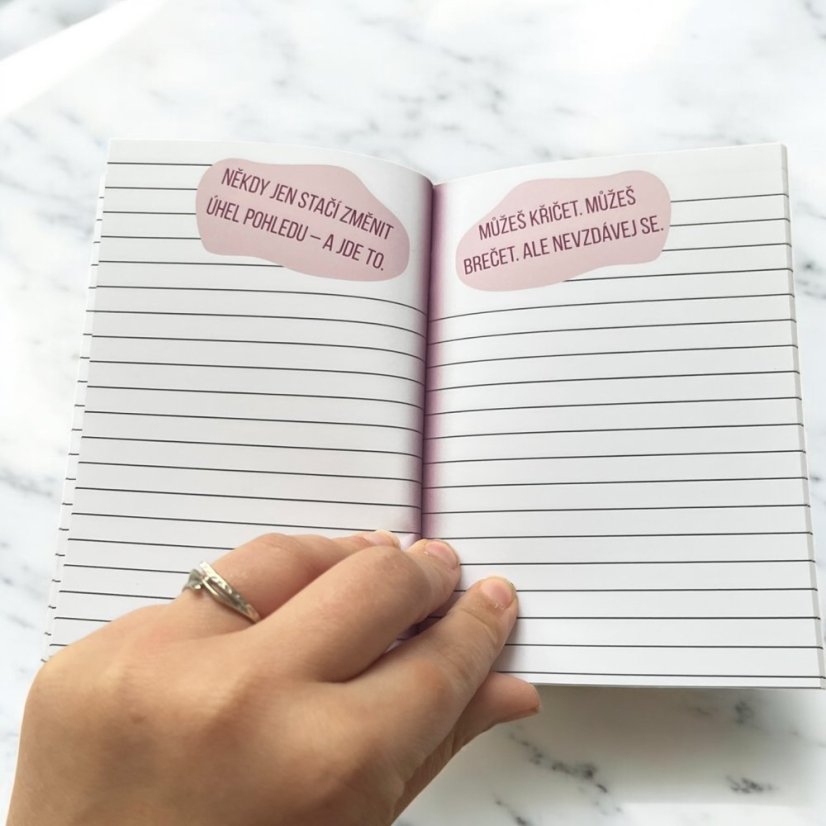 NĚKDY JEN STAČÍ ZMĚNIT
ÚHEL POHLEDU – A JDE TO.
MŮŽEŠ KŘIČET. MŮŽEŠ
BREČET. ALE NEVZDÁVEJ SE.